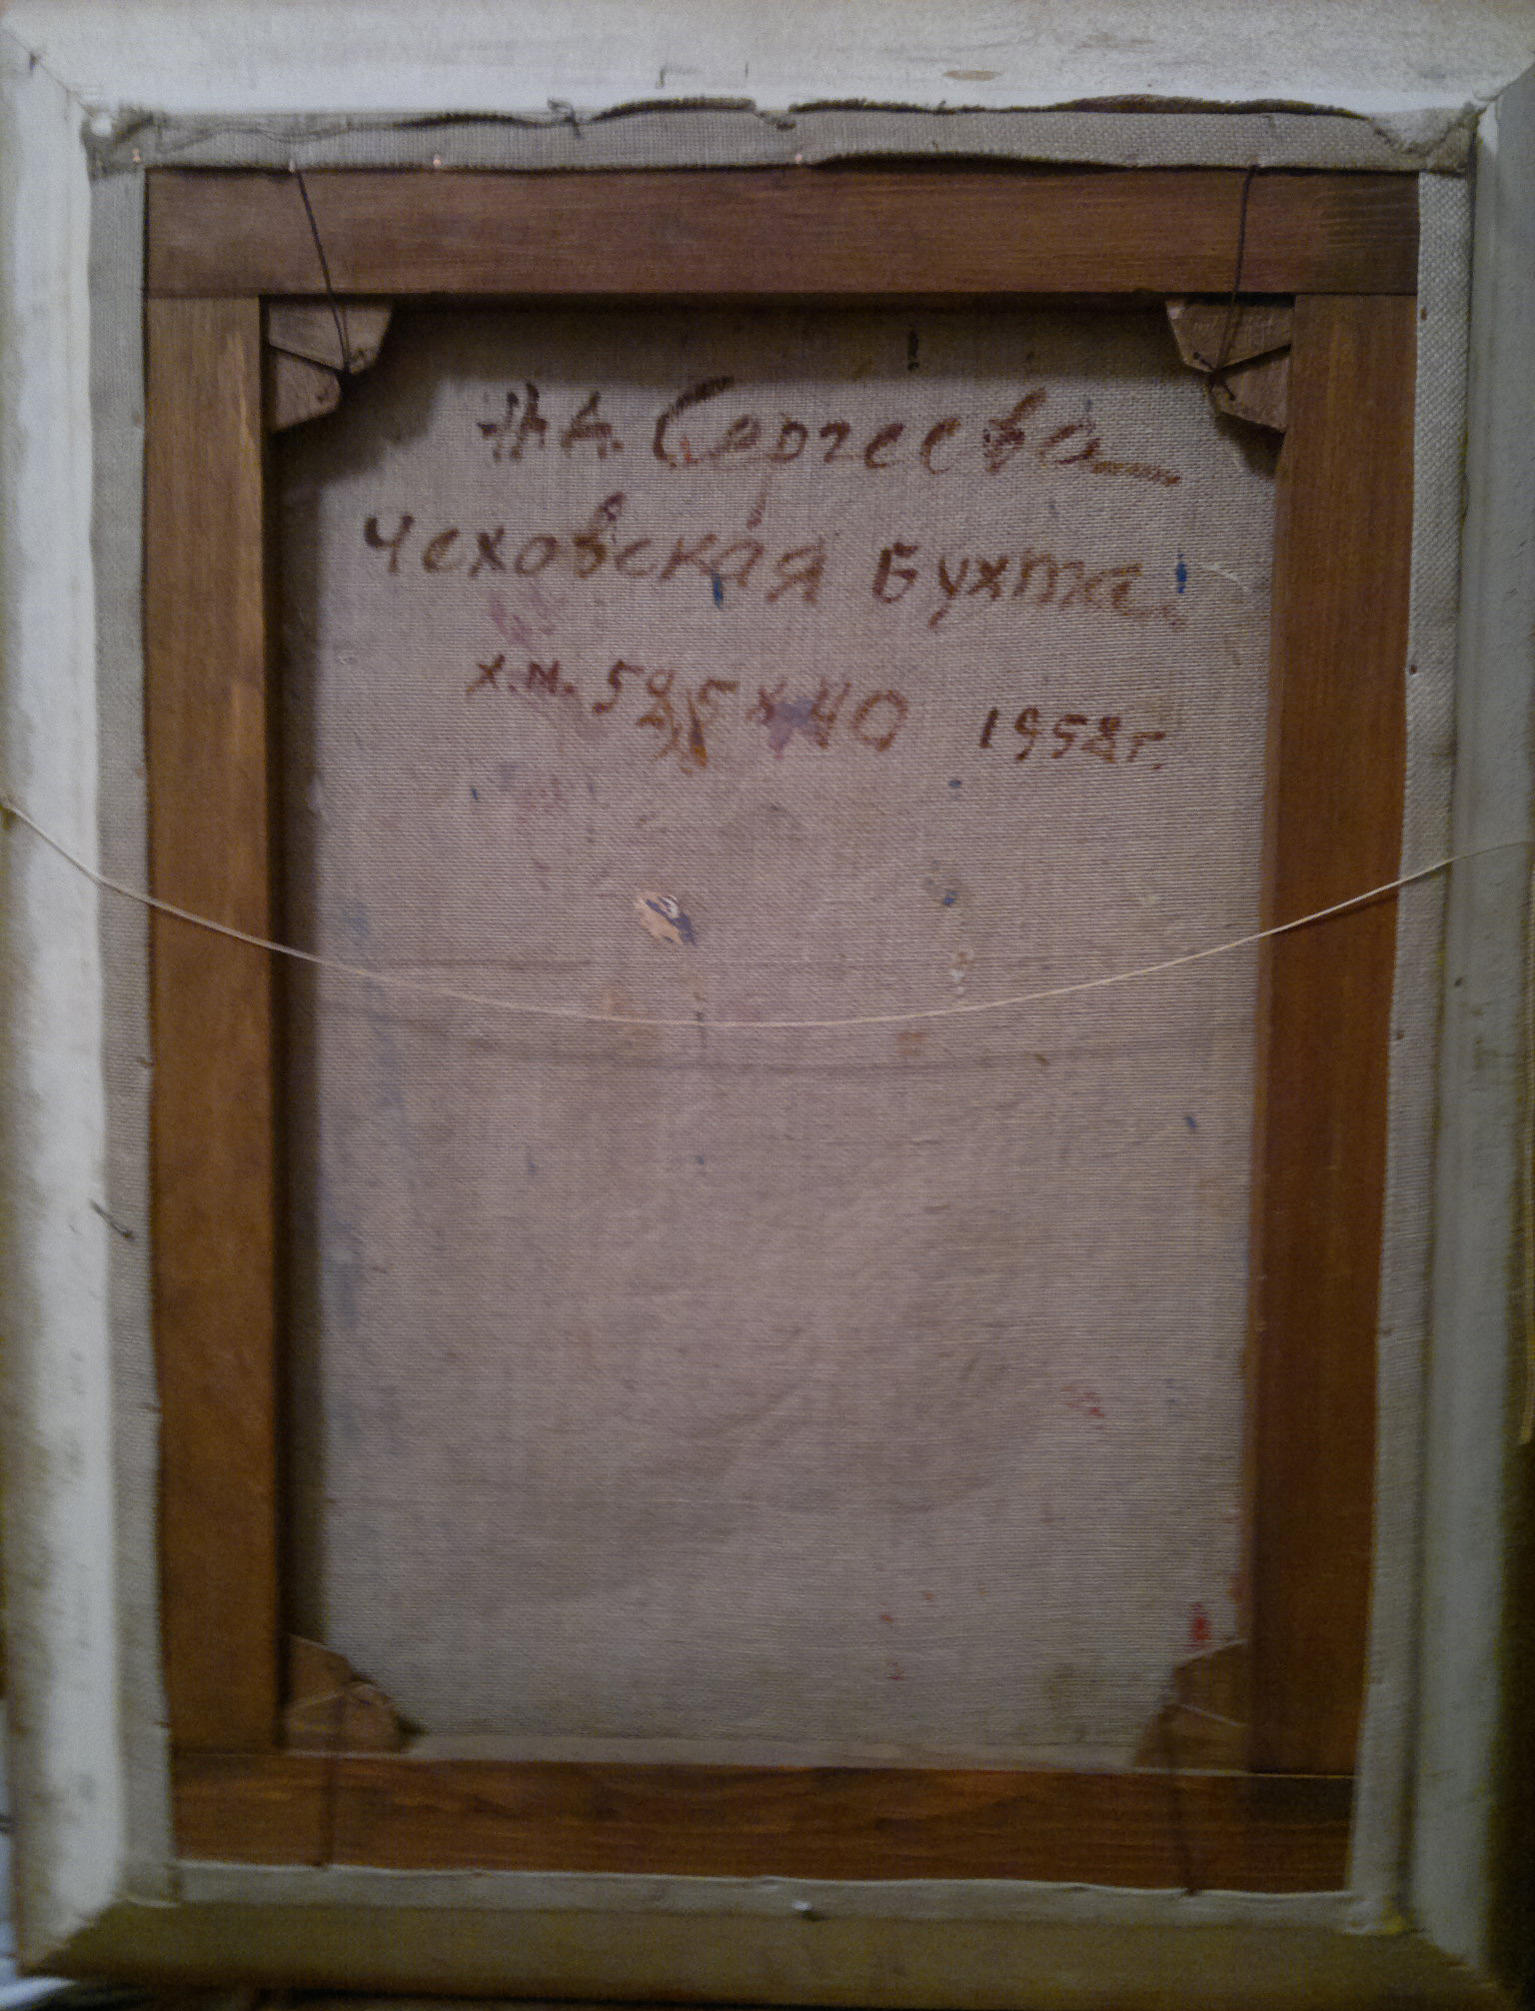 Н.А. Сергеева
Чеховская Бухта.
х.м. 52,5 х 40 1958г.